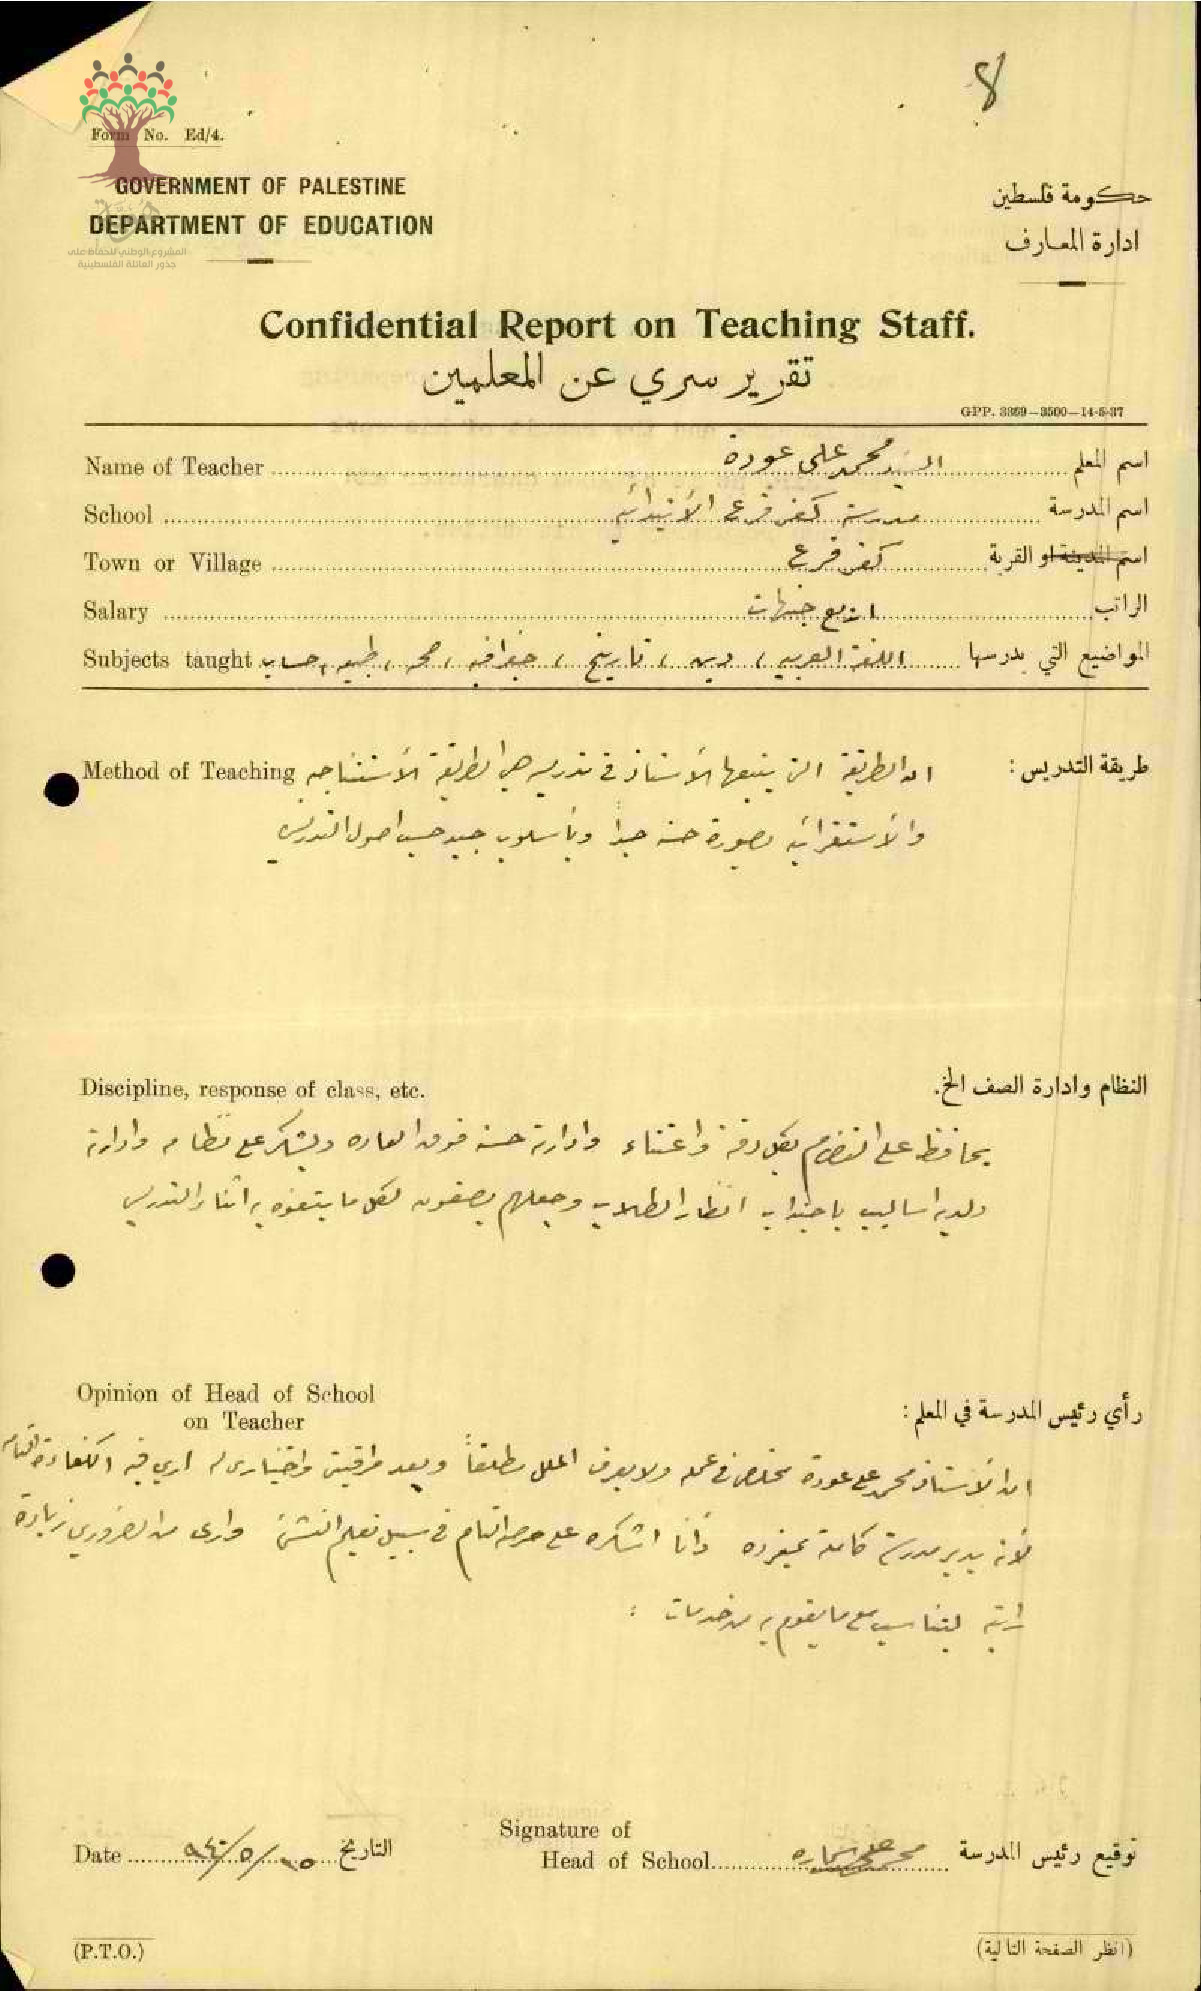 8
Form No. Ed/4.
GOVERNMENT OF PALESTINE
DEPARTMENT OF EDUCATION
حكومة فلسطين
ادارة المعارف
هوية
المشروع الوطني للحفاظ على
جذور العائلة الفلسطينية
Confidential Report on Teaching Staff.
تقرير سري عن المعلمين
GPP. 3369—3500—14-5-37
Name of Teacher السيد محمد علي عودة اسم المعلم
School مدرسة كفر قرع الأبتدائيه اسم المدرسة
Town or Village كفر قرع اسم المدينة او القرية
Salary اربع جنيهات الراتب
Subjects taught اللغة العربيه ، دين ، تاريخ ، جغرافيه ، صحه ، طبيعه ، حساب المواضيع التي يدرسها
Method of Teaching ان الطريقة التي يتبعها الأستاذ في تدريسه هي الطريقة الأستنتاجيه طريقة التدريس :
والأستقرائيه بصورة حسنه جداً وبأسلوب جيد حسب اصول التدريس
Discipline, response of class, etc. النظام وادارة الصف الخ.
يحافظ على النظام بكل دقة واعتناء وادارته حسنة فوق العاده ويشكر على نظامه وادارته
ولديه اساليب باجتذاب انظار الطلاب وجعلهم يصغون لكل ما يتفوه به اثناء التدريس
Opinion of Head of School
on Teacher
رأي رئيس المدرسة في المعلم :
ان الأستاذ محمد علي عودة مخلص في عمله ولا يعرف الملل مطلقاً وبعد مراقبتي واختباري له ارى فيه الكفاءة التامه
لأنه يدير مدرسة كاملة بمفرده وأنا اشكره على حرصه التام في سبيل تعليم النشئ وارى من الضروري زيادة
راتبه ليتناسب مع ما يقوم به من خدمات :
Signature of
Head of School محمد علي توقيع رئيس المدرسة
Date ١٥/٥/٩٤٠ التاريخ
(P.T.O.)
(انظر الصفحة التالية)